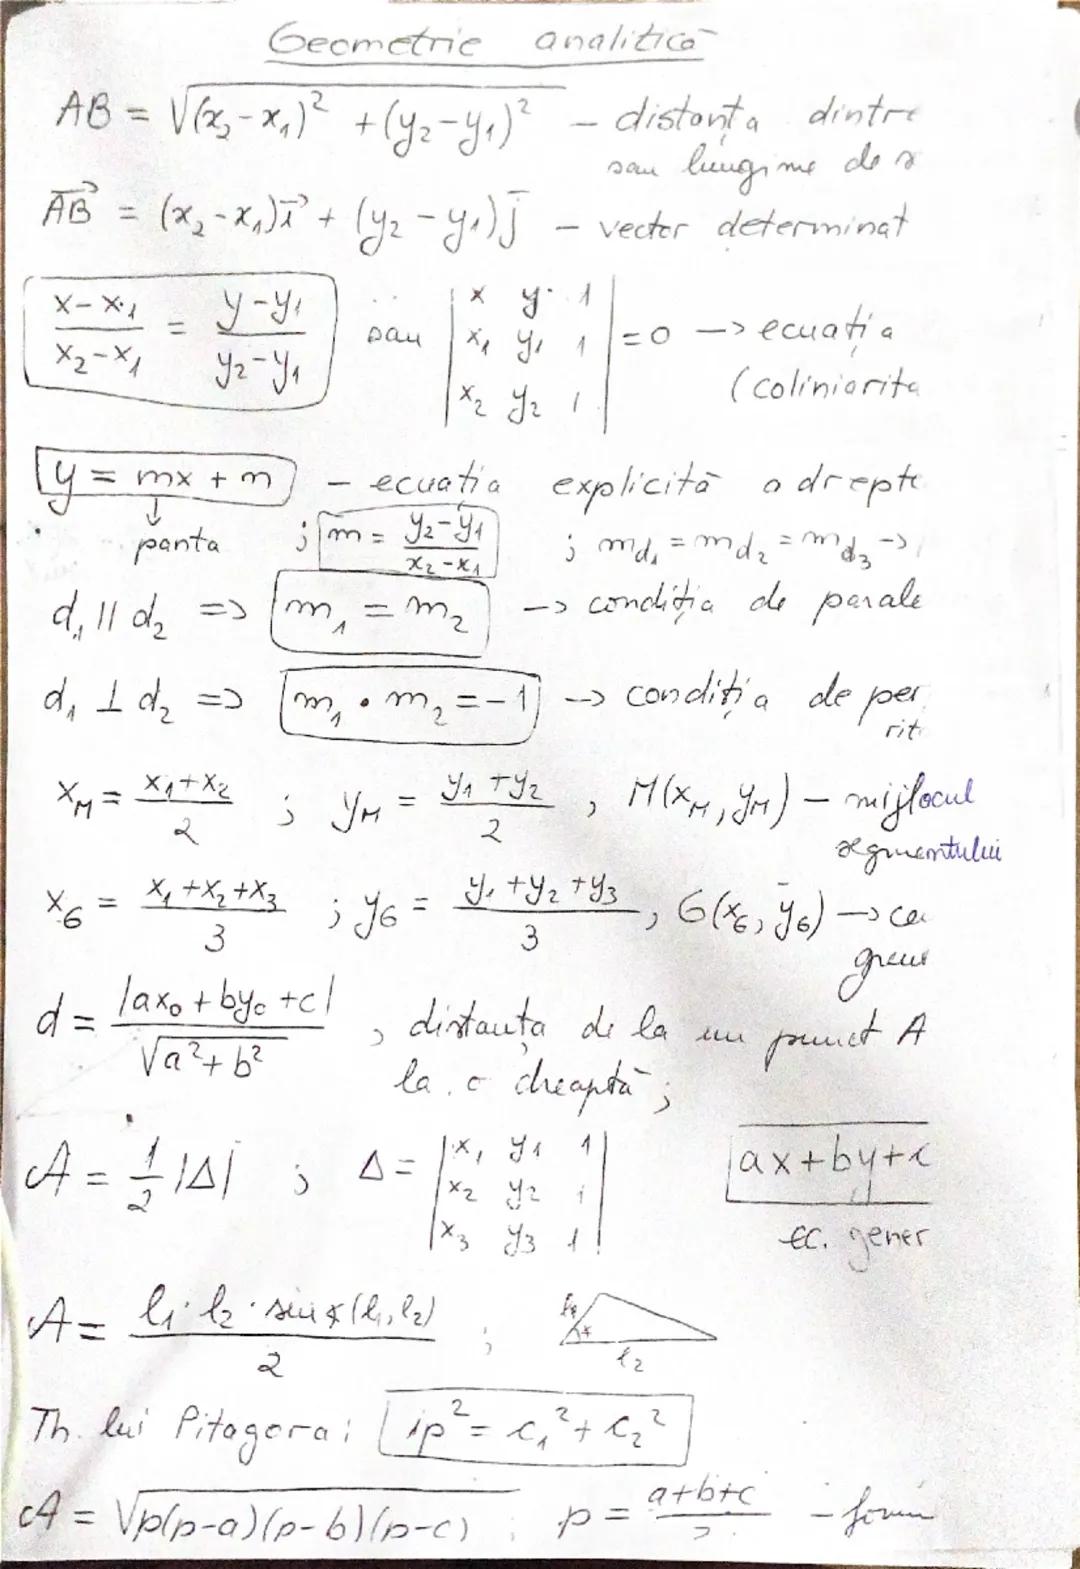 Geometrie analitică
AB = √(x₂-x₁)² + (y₂-y₁)² – distanța dintre
sau lungime de s
AB⃗ = (x₂-x₁)i⃗ + (y₂-y₁)j⃗ – vector determinat
(x-x₁)/(x₂-x₁) = (y-y₁)/(y₂-y₁) sau |x y 1; x₁ y₁ 1; x₂ y₂ 1| = 0 -> ecuația
(coliniarita
y = mx + n – ecuația explicită a drepte
panta ; m = (y₂-y₁)/(x₂-x₁) ; m d₁ = m d₂ = m d₃ ->
d₁ || d₂ => m₁ = m₂ -> condiția de parale
d₁ ⊥ d₂ => m₁ · m₂ = -1 -> condiția de per
rit
x_M = (x₁+x₂)/2 ; y_M = (y₁+y₂)/2 , M(x_M, y_M) – mijlocul
segmentului
x_G = (x₁+x₂+x₃)/3 ; y_G = (y₁+y₂+y₃)/3 , G(x_G, y_G) -> ce
greu
d = |ax₀+by₀+c|/√a²+b² , distanța de la un punct A
la o dreaptă ;
A = 1/2 |Δ| ; Δ = |x₁ y₁ 1; x₂ y₂ 1; x₃ y₃ 1| ax+by+c
ec. gener
A = l₁·l₂·sin∢(l₁,l₂)/2 ; l₁ l₂
Th. lui Pitagora: ip² = c₁² + c₂²
A = √p(p-a)(p-b)(p-c) ; p = (a+b+c)/2 – form